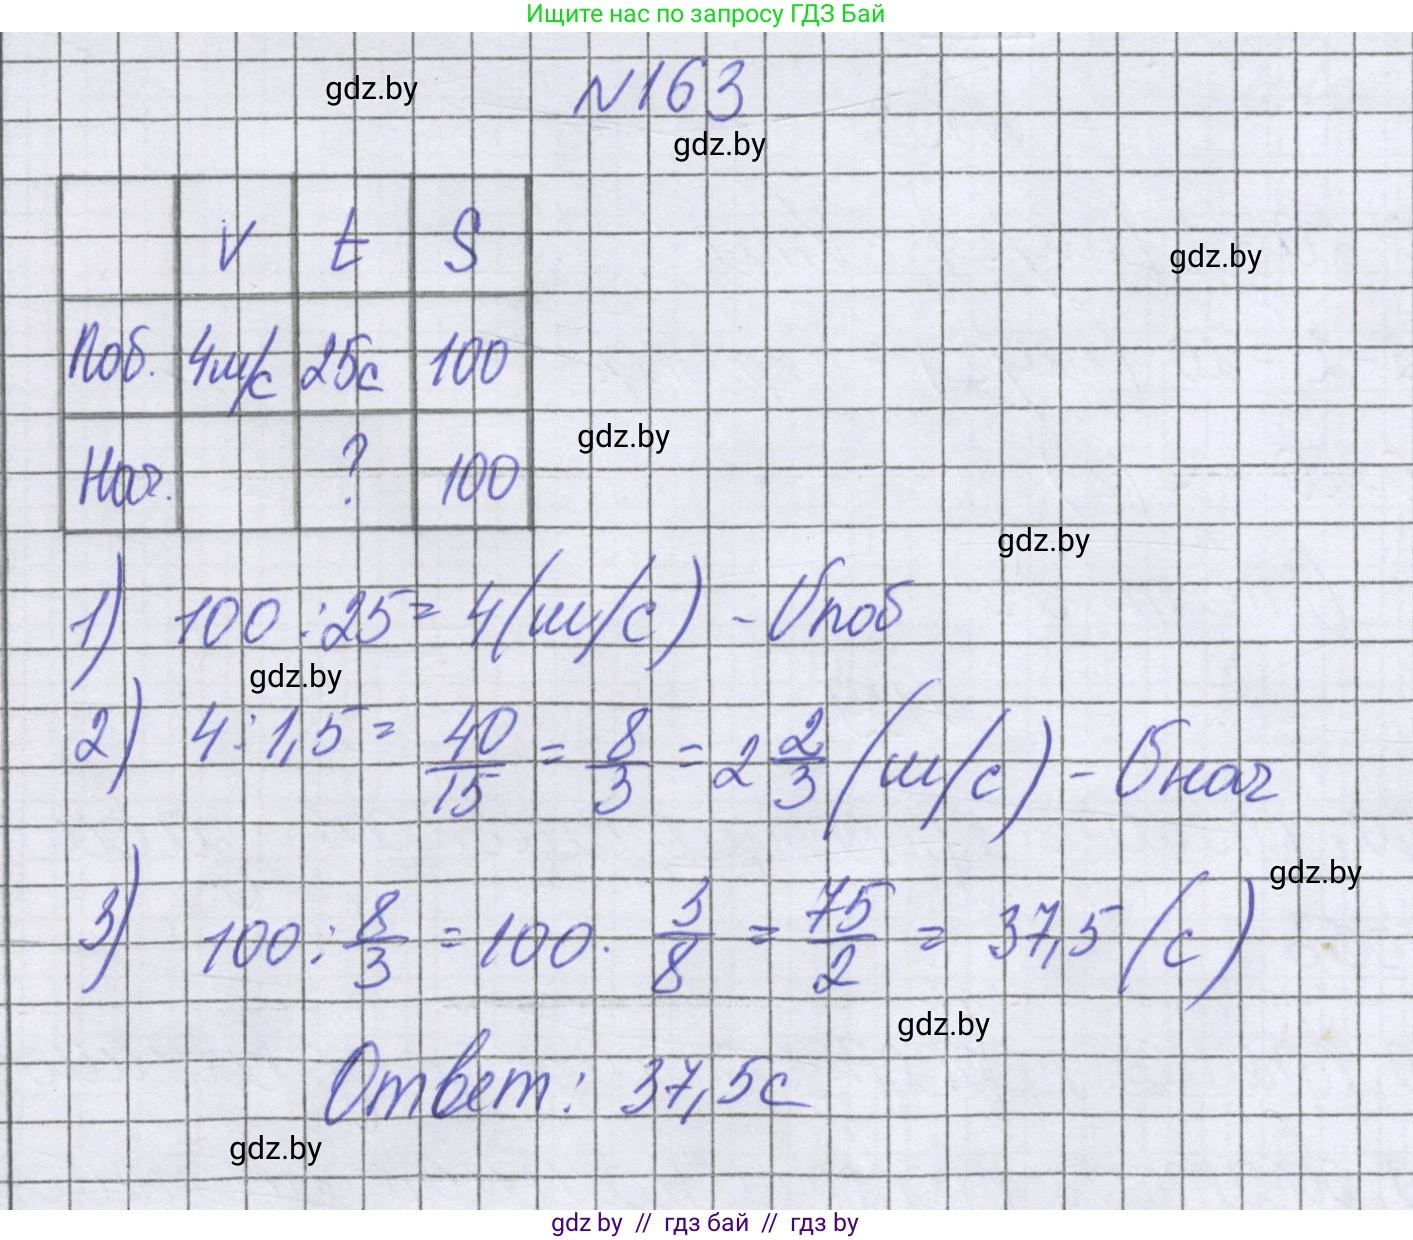 Ищите нас по запросу ГДЗ Бай
gdz.by
N163
gdz.by
V t S
gdz.by
Поб. 4м/с 25с 100
gdz.by
Нач. ? 100
gdz.by
1) 100 : 25 = 4 (м/с) - Vпоб
gdz.by
2) 4 : 1,5 = 40/15 = 8/3 = 2 2/3 (м/с) - Vнач
gdz.by
3) 100 : 8/3 = 100 · 3/8 = 75/2 = 37,5 (с)
gdz.by
Ответ: 37,5с
gdz.by
gdz by // гдз бай // гдз by